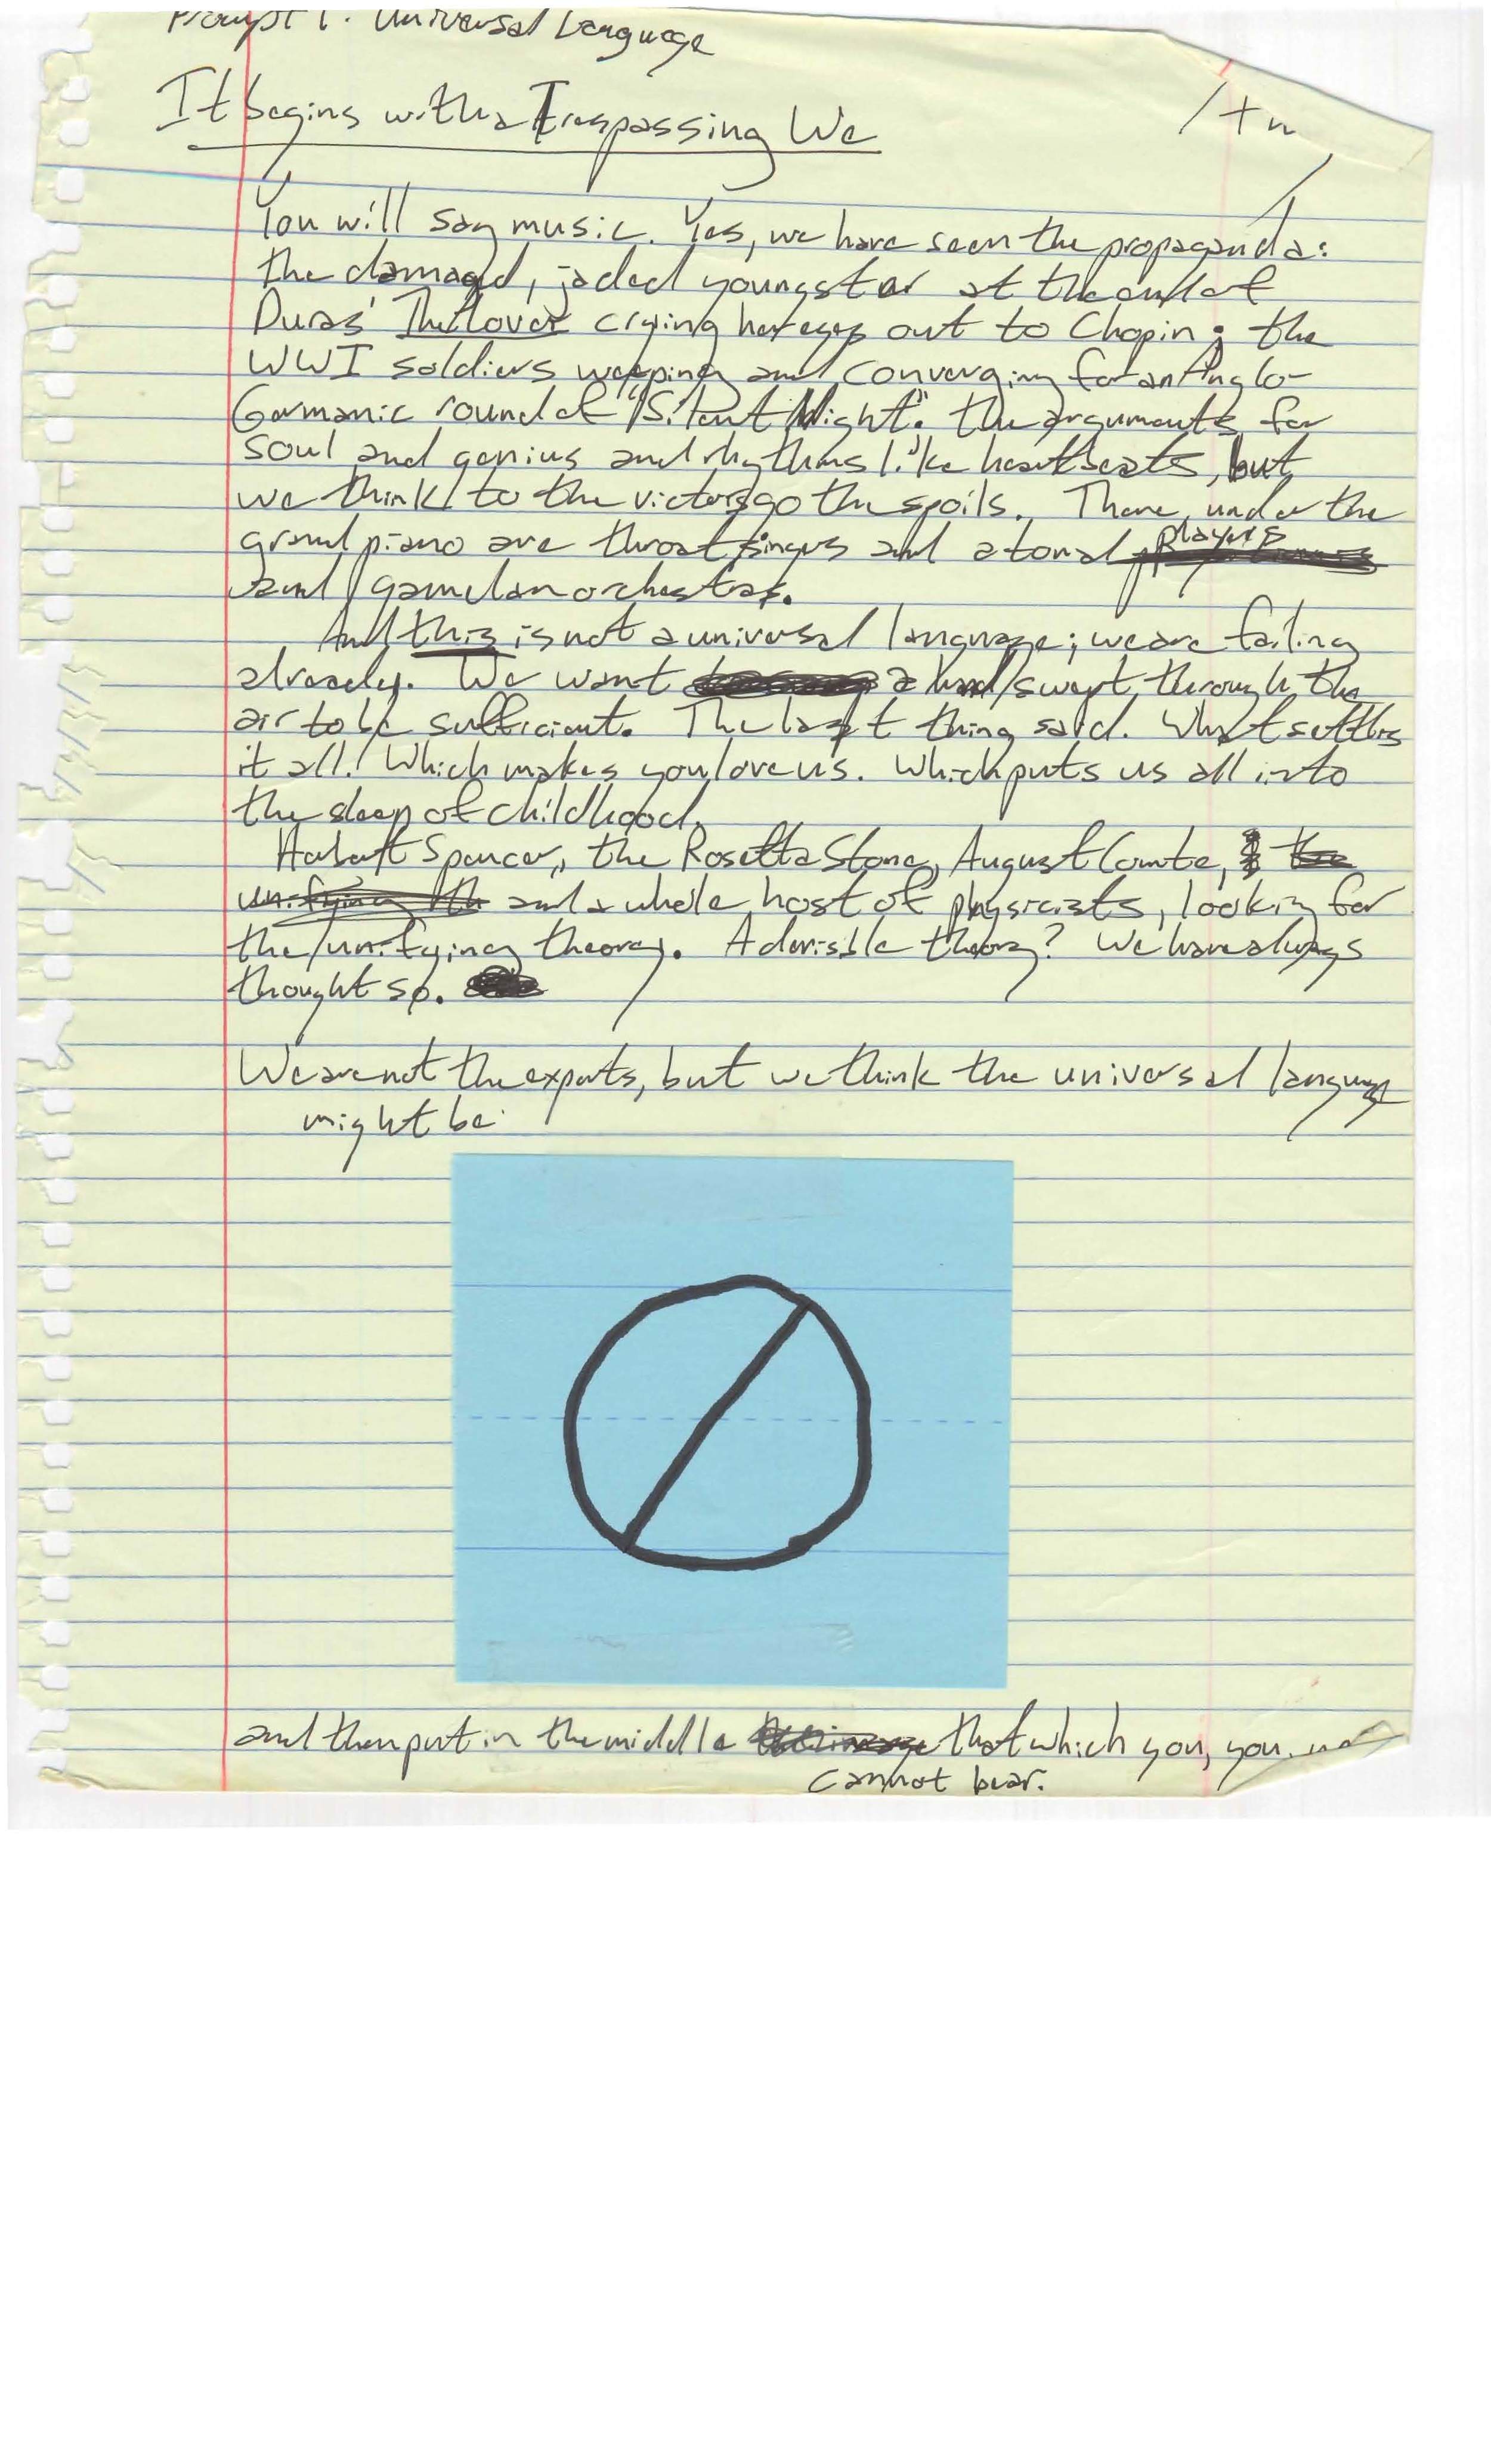 Prompt 1: Universal Language
It begins with a Trespassing We
You will say music. Yes, we have seen the propaganda:
the damaged, jaded youngster at the end of
Duras' The Lover crying her eyes out to Chopin; the
WWI soldiers weeping and converging for an Anglo-
Germanic round of "Silent Night". The arguments for
soul and genius and rhythms like heartbeats, but
we think to the victors go the spoils. There, under the
grand piano are throat singers and atonal players
and gamelan orchestras.
And this is not a universal language; we are failing
already. We want a hand swept through the
air to be sufficient. The last thing said. What settles
it all. Which makes you love us. Which puts us all into
the sleep of childhood.
Herbert Spencer, the Rosetta Stone, August Comte,
and a whole host of physicists, looking for
the unifying theory. A derisible theory? We have always
thought so.
We are not the experts, but we think the universal language
might be:
and then put in the middle that which you, you
cannot bear.